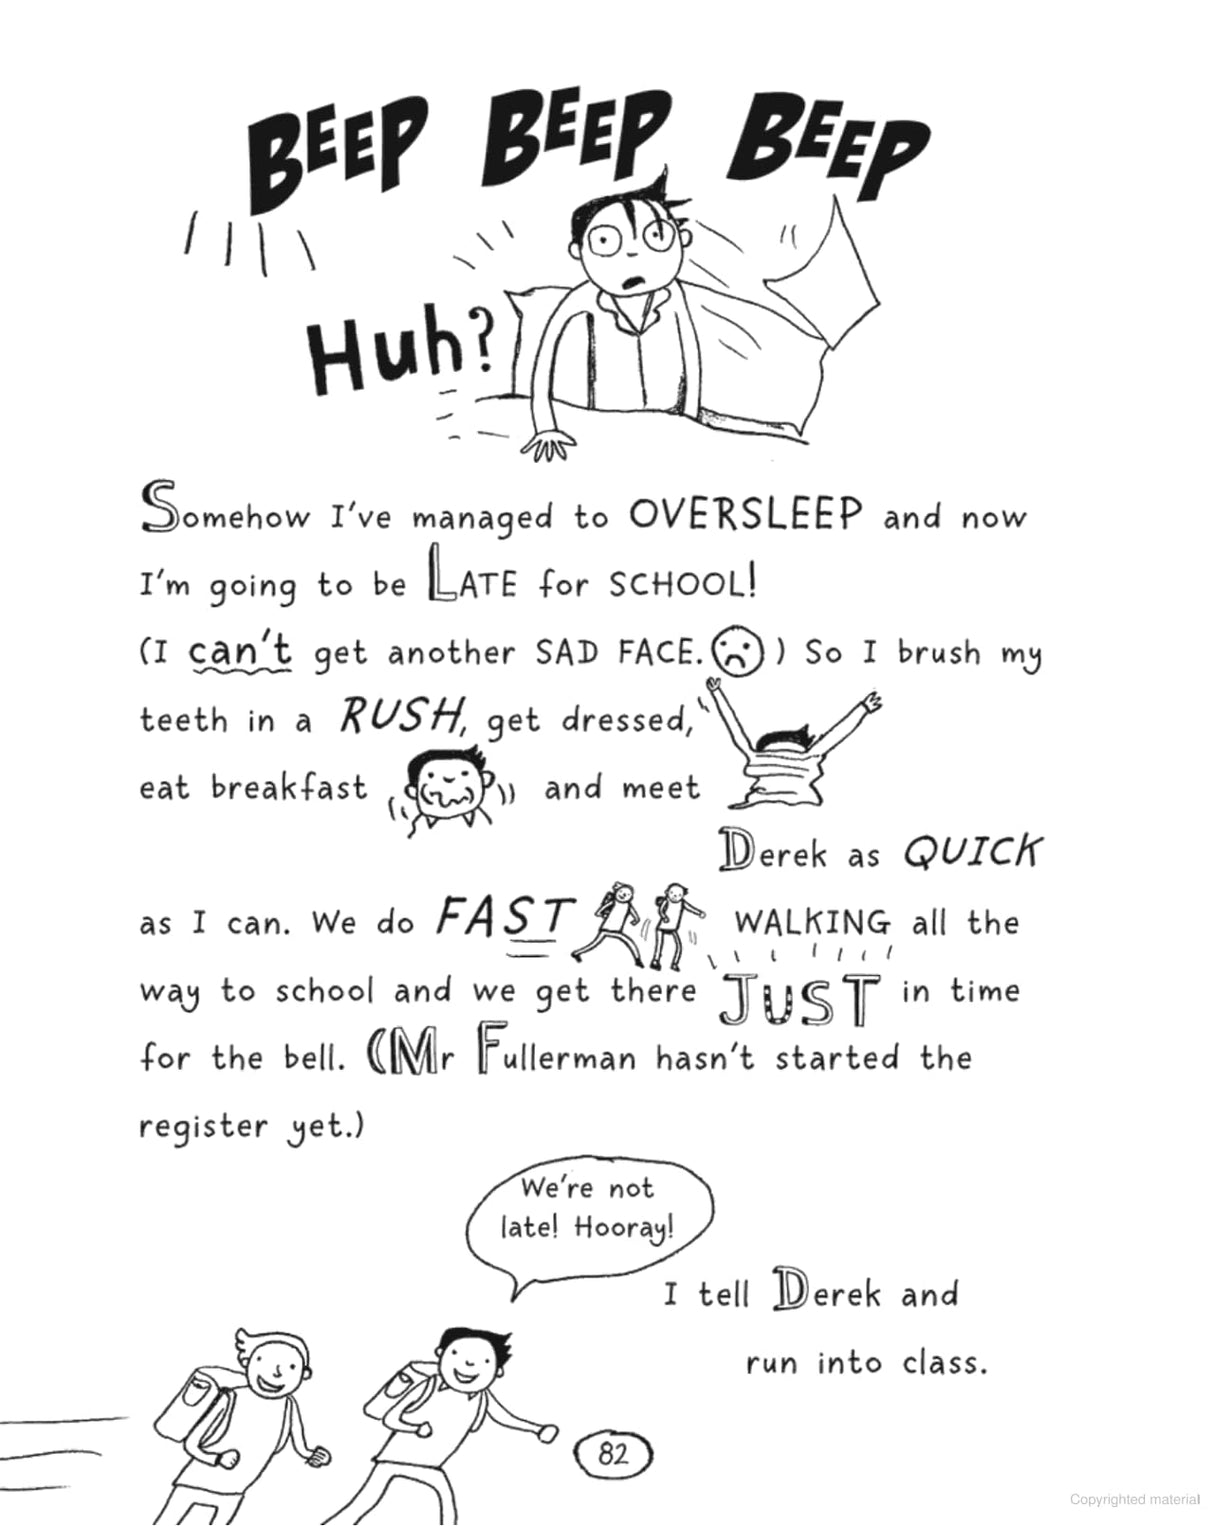 BEEP BEEP BEEP
Huh?
Somehow I've managed to OVERSLEEP and now
I'm going to be LATE for SCHOOL!
(I can't get another SAD FACE. ) So I brush my
teeth in a RUSH, get dressed,
eat breakfast and meet
Derek as QUICK
as I can. We do FAST WALKING all the
way to school and we get there JUST in time
for the bell. (Mr Fullerman hasn't started the
register yet.)
We're not
late! Hooray!
I tell Derek and
run into class.
82
Copyrighted material